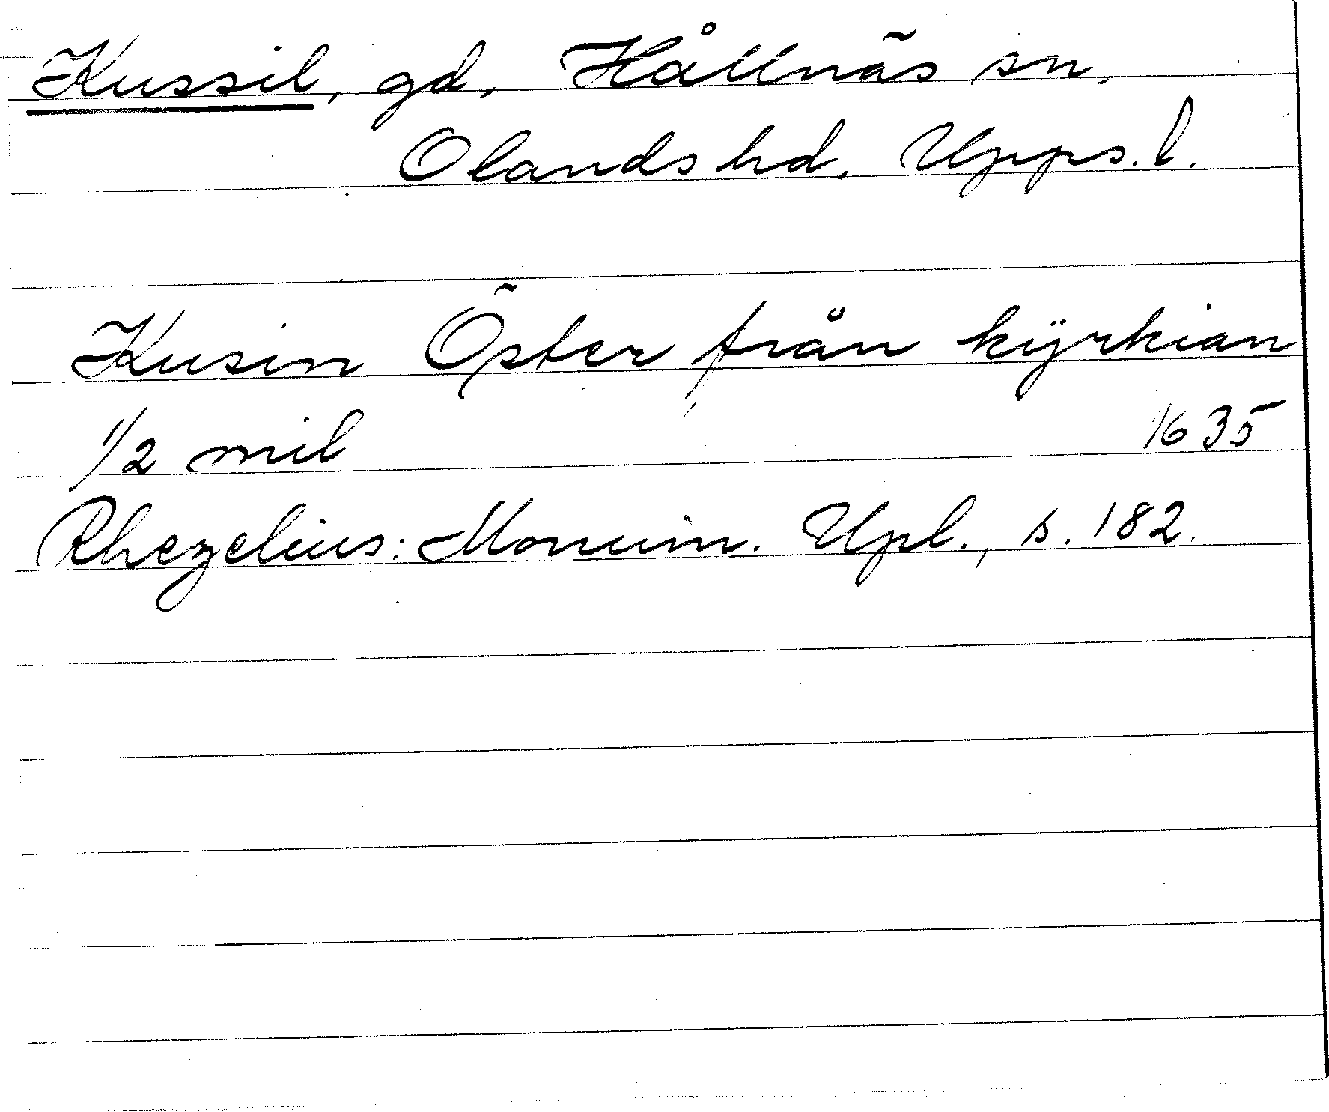 Kussil, gd, Hållnäs sn,
Olands hd, Upps. l.
Kusin Öster från kÿrkian
1/2 mil 1635
Rhezelius: Monum. Upl., s. 182.